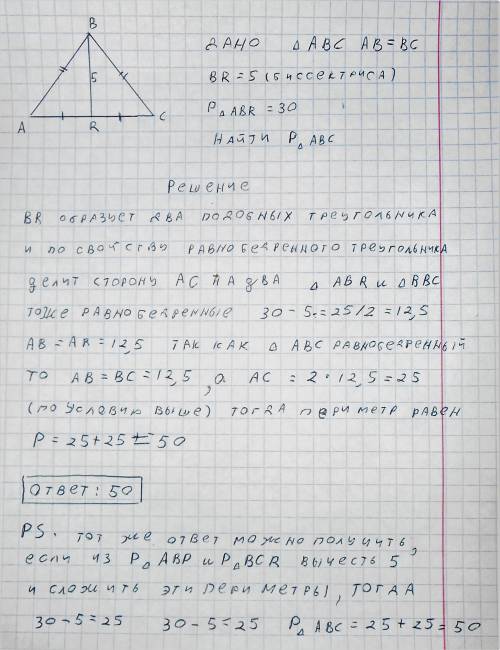 B
5
A R C
ДАНО △ABC AB=BC
BR=5 (биссектриса)
P△ABR=30
НАЙТИ P△ABC
Решение
BR ОБРАЗУЕТ ДВА ПОДОБНЫХ ТРЕУГОЛЬНИКА
И ПО СВОЙСТВУ РАВНОБЕДРЕННОГО ТРЕУГОЛЬНИКА
ДЕЛИТ СТОРОНУ AC НА ДВА △ABR и △BBC
ТОЖЕ РАВНОБЕДРЕННЫЕ 30-5=25/2=12,5
AB=AR=12,5 ТАК КАК △ABC РАВНОБЕДРЕННЫЙ
ТО AB=BC=12,5, а AC = 2·12,5=25
(ПО УСЛОВИЮ ВЫШЕ) ТОГДА ПЕРИМЕТР РАВЕН
P=25+25=50
ОТВЕТ: 50
PS. ТОТ ЖЕ ОТВЕТ МОЖНО ПОЛУЧИТЬ,
ЕСЛИ ИЗ P△ABP и P△BCR ВЫЧЕСТЬ 5
И СЛОЖИТЬ ЭТИ ПЕРИМЕТРЫ, ТОГДА
30-5=25 30-5=25 P△ABC=25+25=50